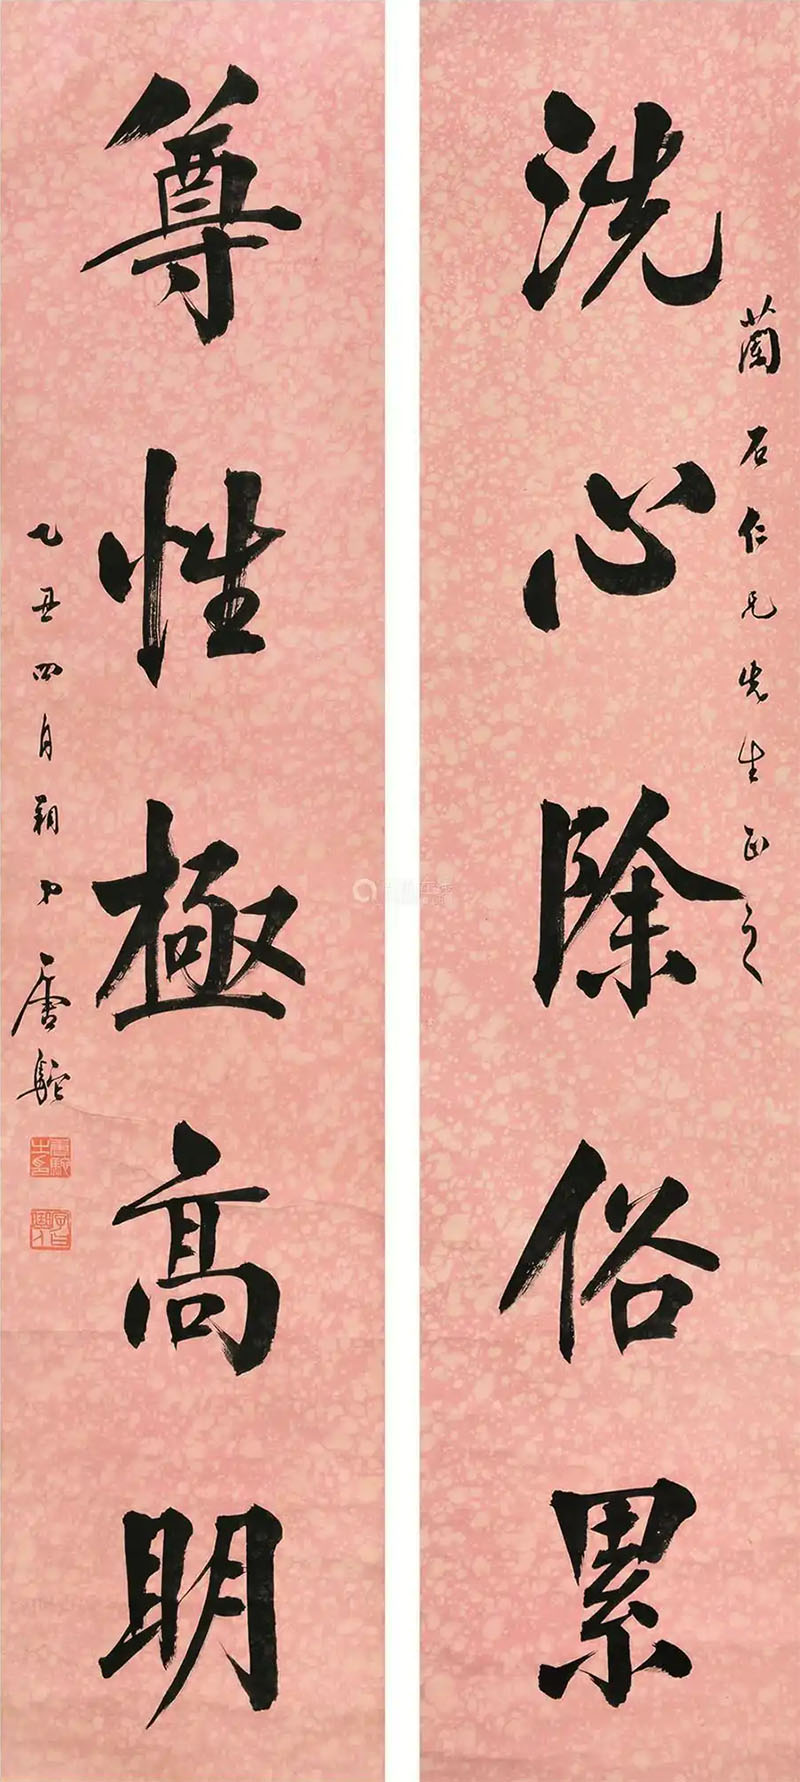 洗心除俗累
蘭石仁兄先生正之
尊性極高明
乙丑四月朔弟唐駝